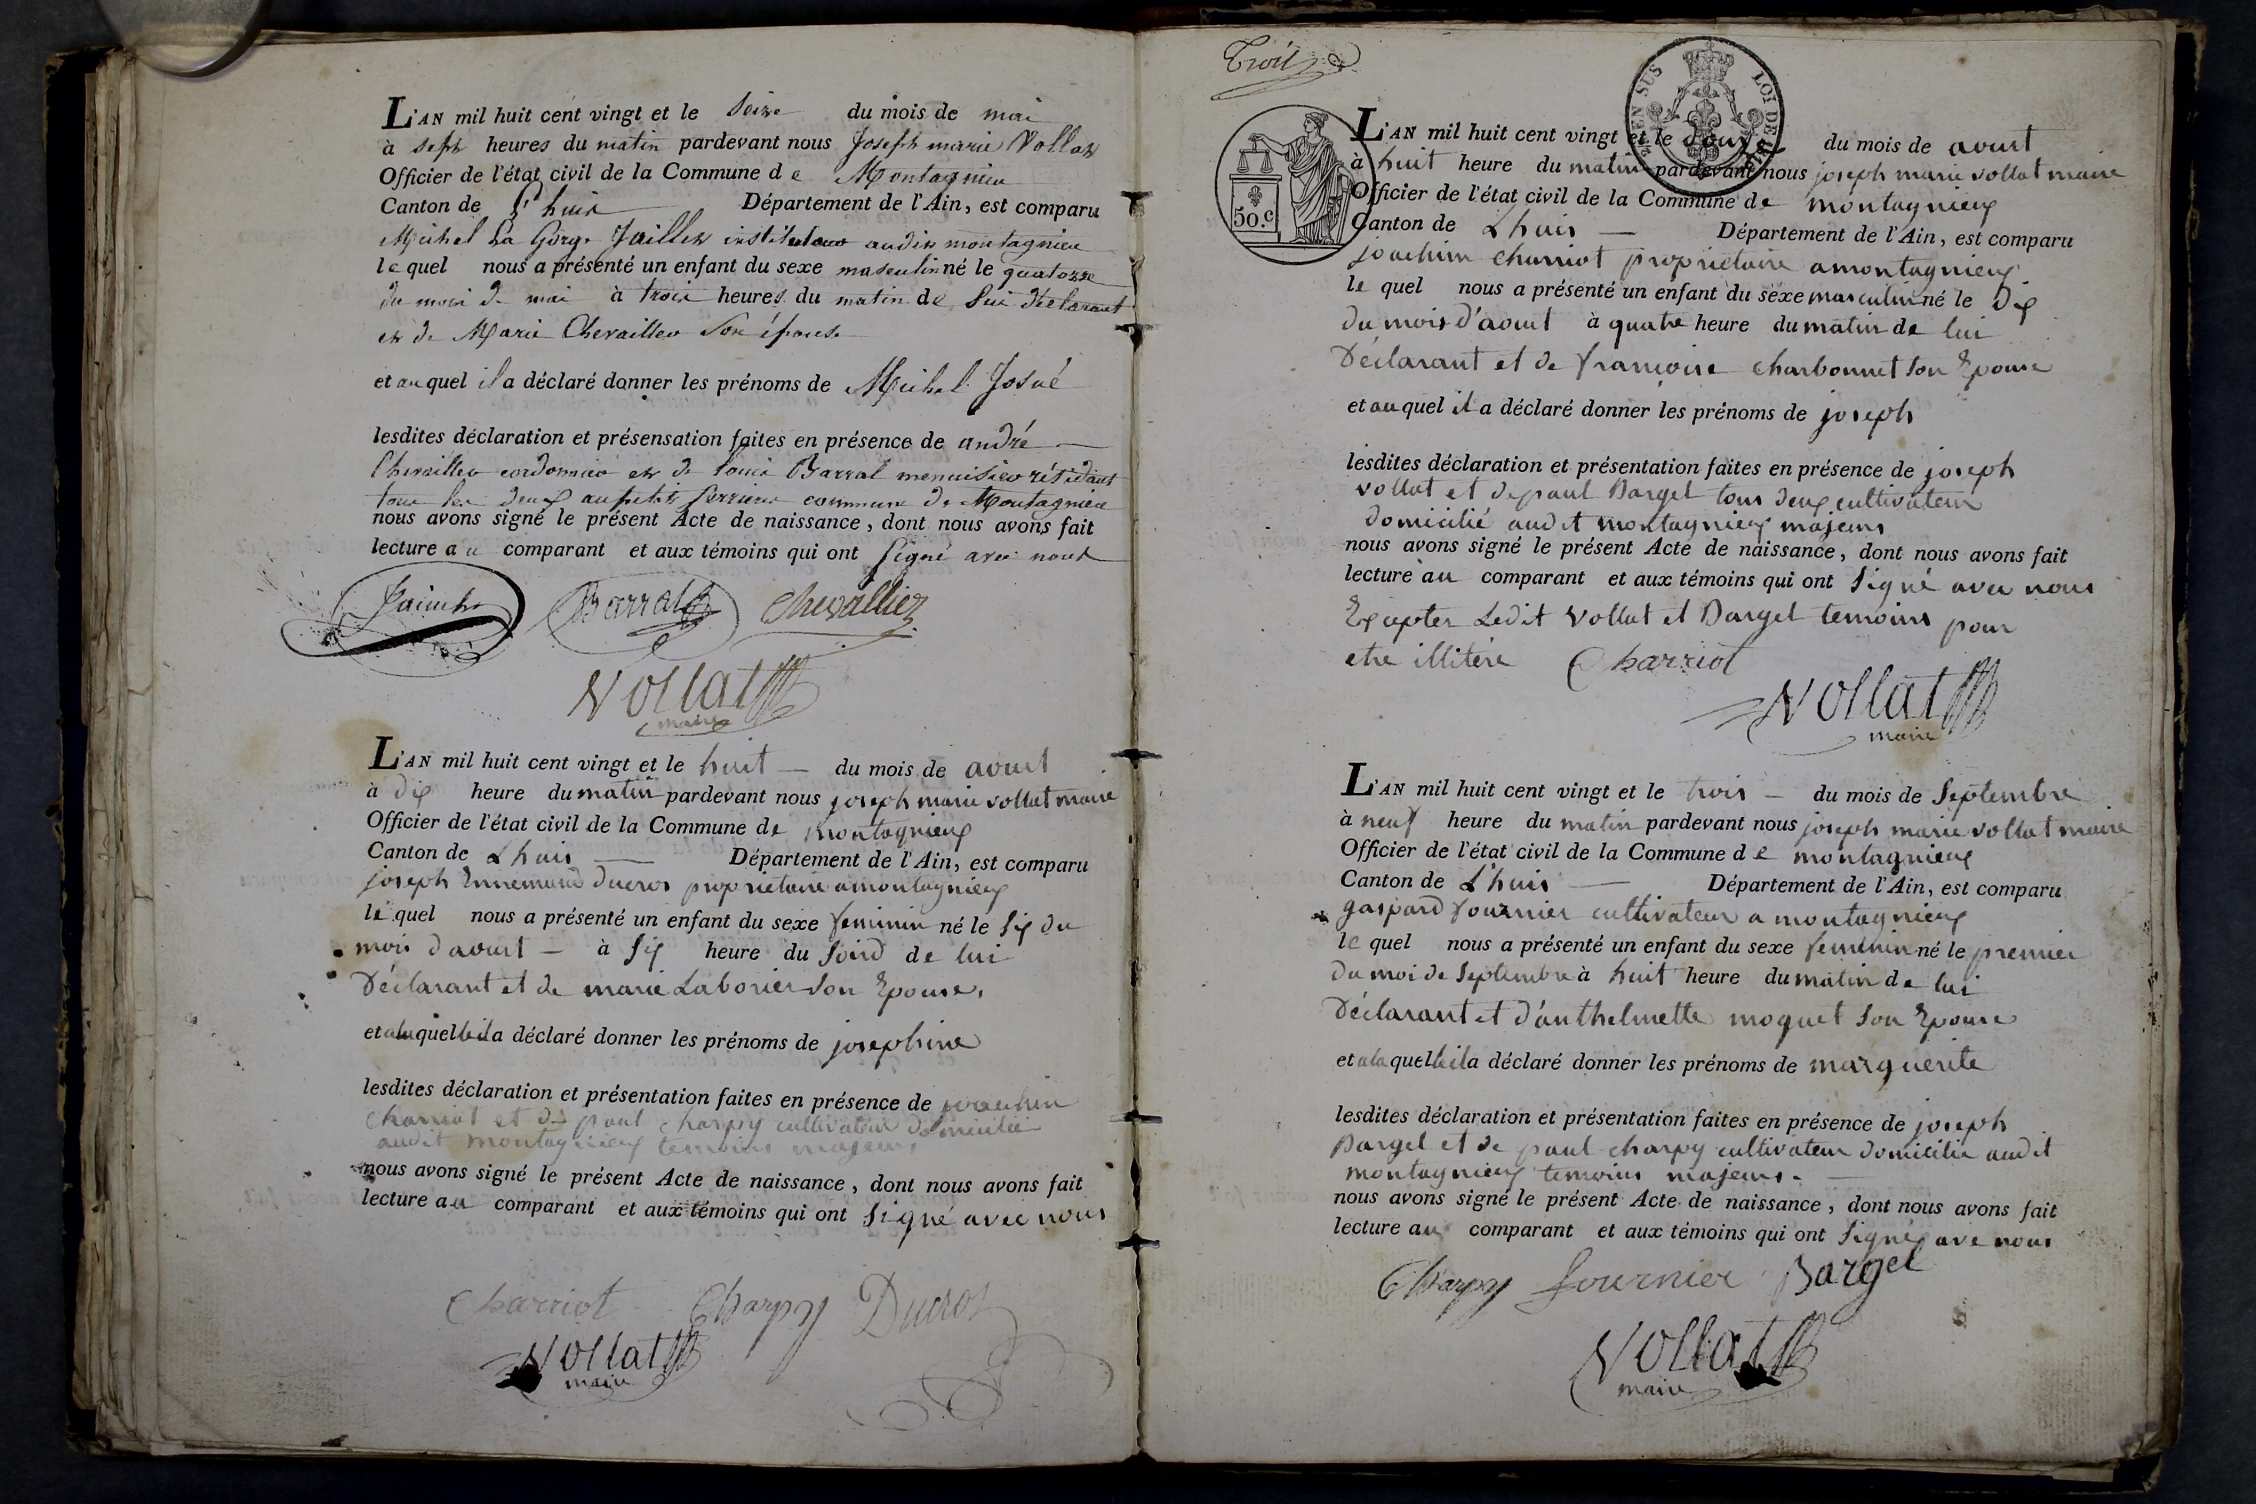 L'AN mil huit cent vingt et le seize du mois de mai
à sept heures du matin pardevant nous Joseph marie Vollat
Officier de l'état civil de la Commune de Montagnieu
Canton de L'huis Département de l'Ain, est comparu
Michel La Gorge Jaillet instituteur audit montagnieu
lequel nous a présenté un enfant du sexe masculin né le quatorze
du mois de mai à trois heures du matin de lui déclarant
et de Marie Chevallier son épouse
et auquel il a déclaré donner les prénoms de Michel Josué
lesdites déclaration et présensation faites en présence de andré
Chevallier cordonnier et de louis Barral menuisier résidant
tous les deux au petit Serrieu commune de Montagnieu
nous avons signé le présent Acte de naissance, dont nous avons fait
lecture au comparant et aux témoins qui ont signé avec nous
Barral Chevallier
Vollat
maire
L'AN mil huit cent vingt et le huit du mois de aoust
à dix heure du matin pardevant nous joseph marie vollat maire
Officier de l'état civil de la Commune de montagnieux
Canton de Lhuis Département de l'Ain, est comparu
joseph Ennemond ducros proprietaire a montagnieux
lequel nous a présenté un enfant du sexe feminin né le six du
mois d'aoust à six heure du soird de lui
Déclarant et de marie Laborier son Epouse,
et alaquelle il a déclaré donner les prénoms de josephine
lesdites déclaration et présentation faites en présence de joachin
charriot et de paul charpy cultivateur domicilie
audit montagnieux temoins majeurs
nous avons signé le présent Acte de naissance, dont nous avons fait
lecture au comparant et aux témoins qui ont signé avec nous
Charriot Charpy Ducros
Vollat
maire
Trois
TIMBRE EN SUS LOI DE 1816
50.c
L'AN mil huit cent vingt et le douze du mois de aoust
à huit heure du matin pardevant nous joseph marie vollat maire
Officier de l'état civil de la Commune de montagnieux
Canton de Lhuis Département de l'Ain, est comparu
joachim charriot proprietaire a montagnieux
lequel nous a présenté un enfant du sexe masculin né le dix
du mois d'aoust à quatre heure du matin de lui
Déclarant et de françoise charbonnet son Epouse
et auquel il a déclaré donner les prénoms de joseph
lesdites déclaration et présentation faites en présence de joseph
vollat et de paul Barget tous deux cultivateur
domicilié audit montagnieux majeurs
nous avons signé le présent Acte de naissance, dont nous avons fait
lecture au comparant et aux témoins qui ont signé avec nous
Excepter Ledit vollat et Barget temoins pour
etre illitéré Charriot
Vollat
maire
L'AN mil huit cent vingt et le trois du mois de septembre
à neuf heure du matin pardevant nous joseph marie vollat maire
Officier de l'état civil de la Commune de montagnieux
Canton de L'huis Département de l'Ain, est comparu
gaspard fournier cultivateur a montagnieux
lequel nous a présenté un enfant du sexe feminin né le premier
du moi de septembre à huit heure du matin de lui
Déclarant et d'anthelmette moquet son Epouse
et alaquelle il a déclaré donner les prénoms de marguerite
lesdites déclaration et présentation faites en présence de joseph
Barget et de paul charpy cultivateur domicilie audit
montagnieux temoins majeurs.
nous avons signé le présent Acte de naissance, dont nous avons fait
lecture au comparant et aux témoins qui ont signés ave nous
Charpy fournier Barget
Vollat
maire